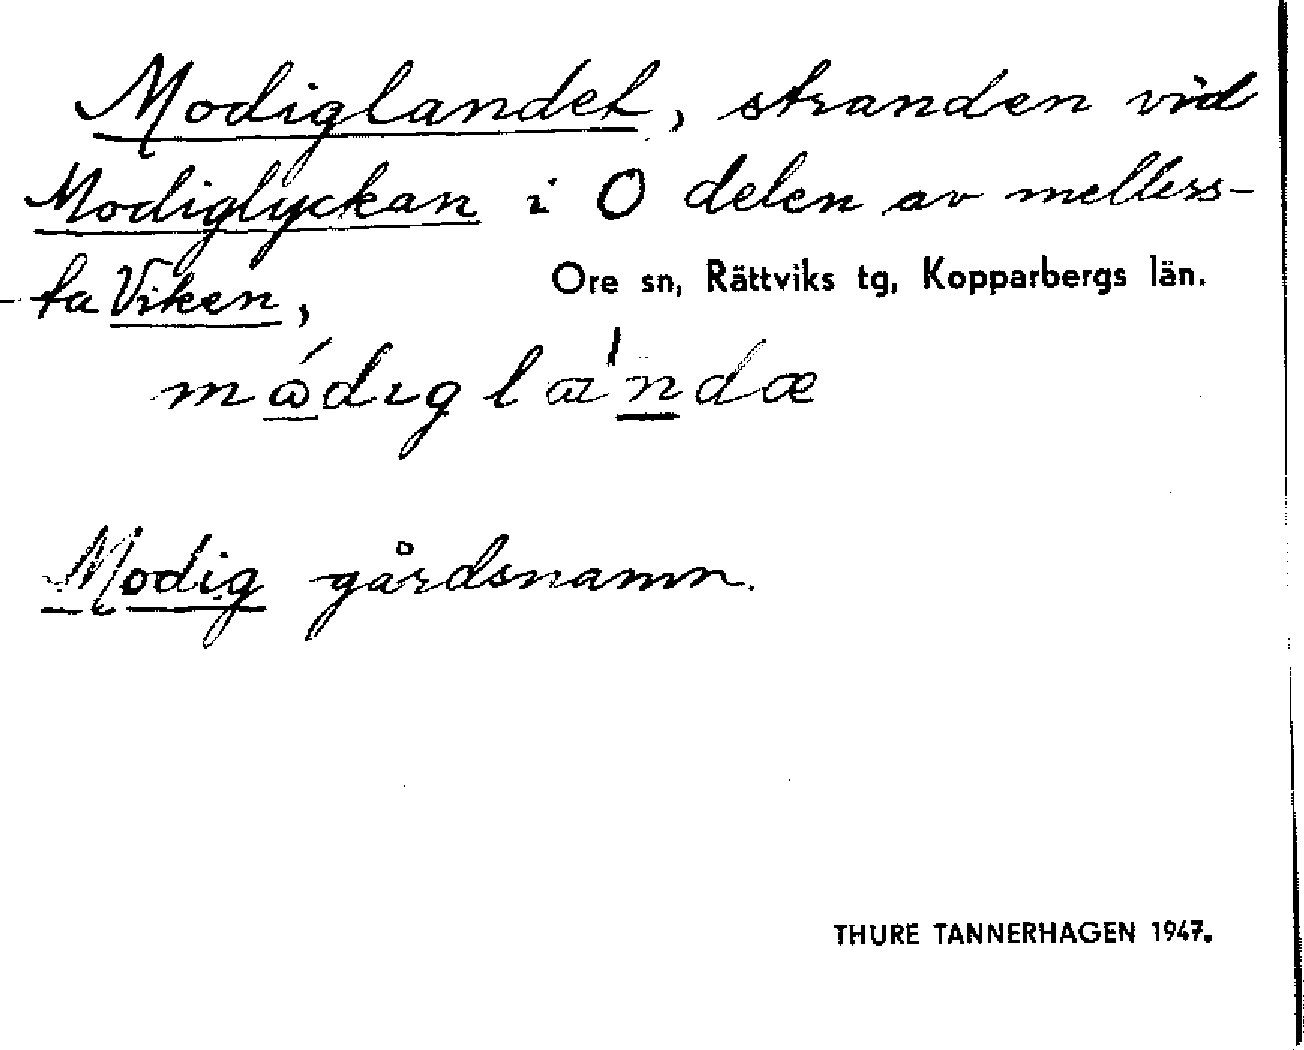 Modiglandet, stranden vid
Modiglyckan i O delen av mellers-
ta Viken,
Ore sn, Rättviks tg, Kopparbergs län.
Modig gårdsnamn.
THURE TANNERHAGEN 1947.